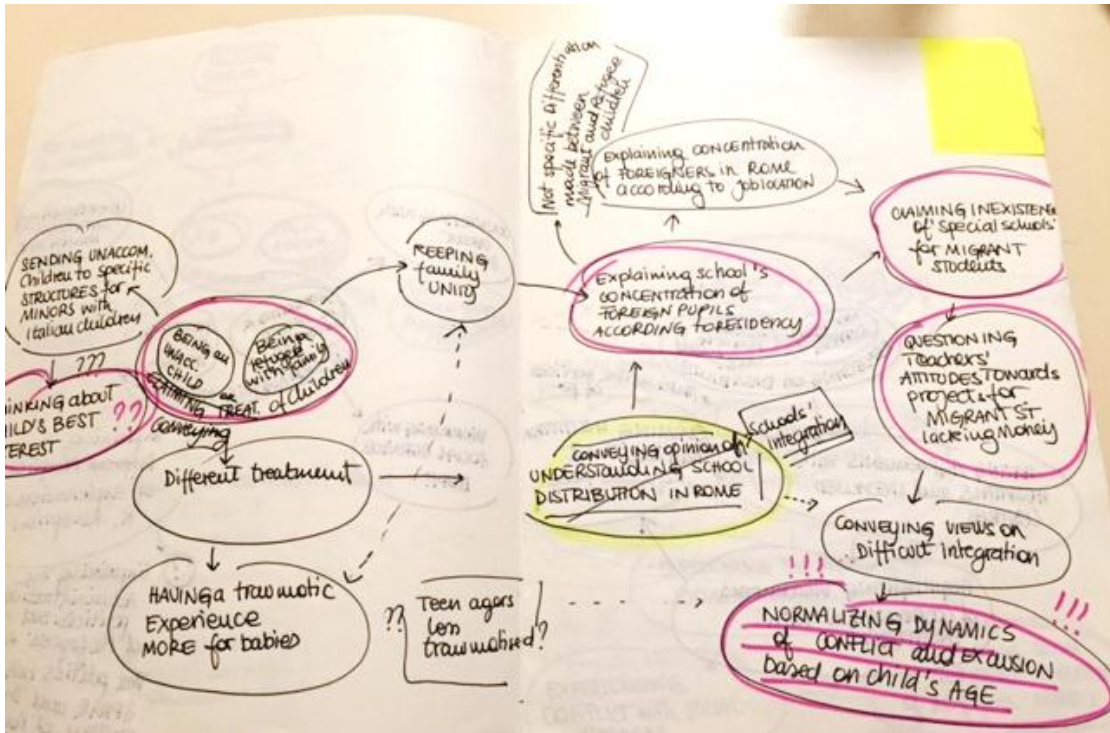 SENDING UNACCOM.
Children to specific
STRUCTURES for
MINORS with
Italian children
???
INKING about
ILD'S BEST
TEREST
??
BEING an
UNACC.
CHILD
or
Being a
refugee
with family
TREAT. of children
conveying
Different treatment
HAVING a traumatic
Experience
MORE for babies
KEEPING
family
UNITY
??
Teen agers
less
traumatised?
Not specific Differentiation
made between
Migrant and Refugee
children
Explaining CONCENTRATION
of FOREIGNERS in ROME
according to job location
Explaining school's
CONCENTRATION of
FOREIGN PUPILS
ACCORDING to RESIDENCY
CONVEYING opinion of
UNDERSTANDING SCHOOL
DISTRIBUTION IN ROME
Schools'
integration
CLAIMING INEXISTEN
of 'special schools'
for MIGRANT
Students
QUESTIONING
Teachers'
ATTITUDES TOWARDS
projects for
MIGRANT ST.
lacking Money
CONVEYING VIEWS ON
Difficult Integration
!!!
!!!
NORMALIZING DYNAMICS
of CONFLICT and EXCLUSION
based on child's AGE